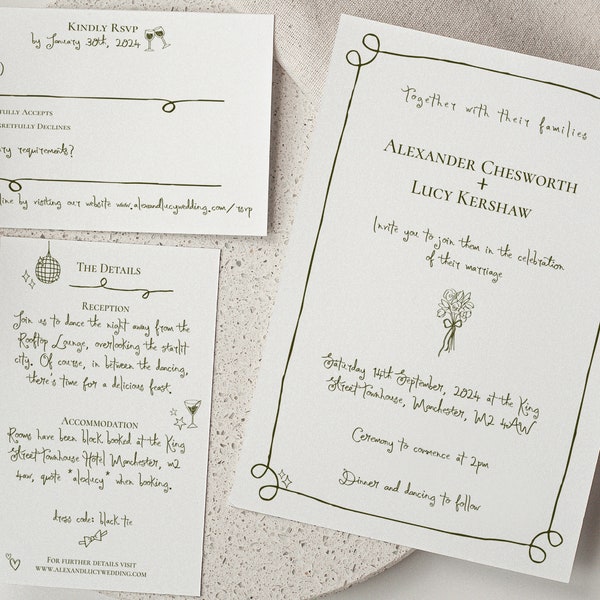 KINDLY RSVP
by January 30th, 2024
)
FULLY ACCEPTS
GRETFULLY DECLINES
ry requirements?
line by visiting our website www.alexandlucywedding.com/rsvp
THE DETAILS
RECEPTION
Join us to dance the night away from the
Rooftop Lounge, overlooking the starlit
city. Of course, in between the dancing,
there's time for a delicious feast.
ACCOMMODATION
Rooms have been block booked at the King
Street Townhouse Hotel Manchester, m2
4aw, quote "alexlucy" when booking.
dress code: black tie
FOR FURTHER DETAILS VISIT
WWW.ALEXANDLUCYWEDDING.COM
Together with their families
ALEXANDER CHESWORTH
+
LUCY KERSHAW
Invite you to join them in the celebration
of their marriage
Saturday 14th September, 2024 at the King
Street Townhouse, Manchester, M2 4AW
Ceremony to commence at 2pm
Dinner and dancing to follow